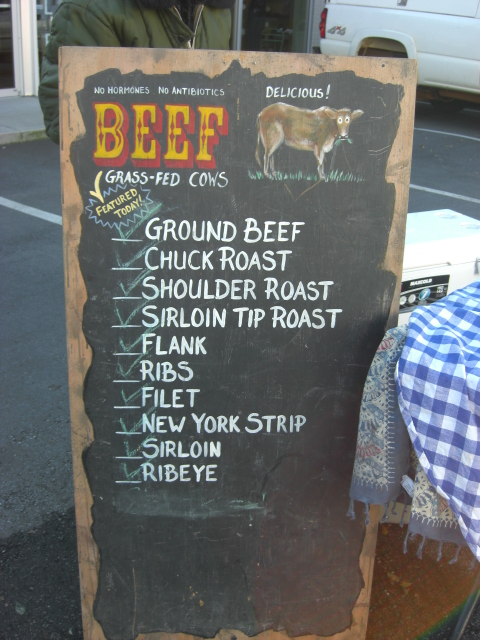 NO HORMONES NO ANTIBIOTICS
DELICIOUS!
BEEF
GRASS-FED COWS
FEATURED
TODAY!
GROUND BEEF
CHUCK ROAST
SHOULDER ROAST
SIRLOIN TIP ROAST
FLANK
RIBS
FILET
NEW YORK STRIP
SIRLOIN
RIBEYE
4x4